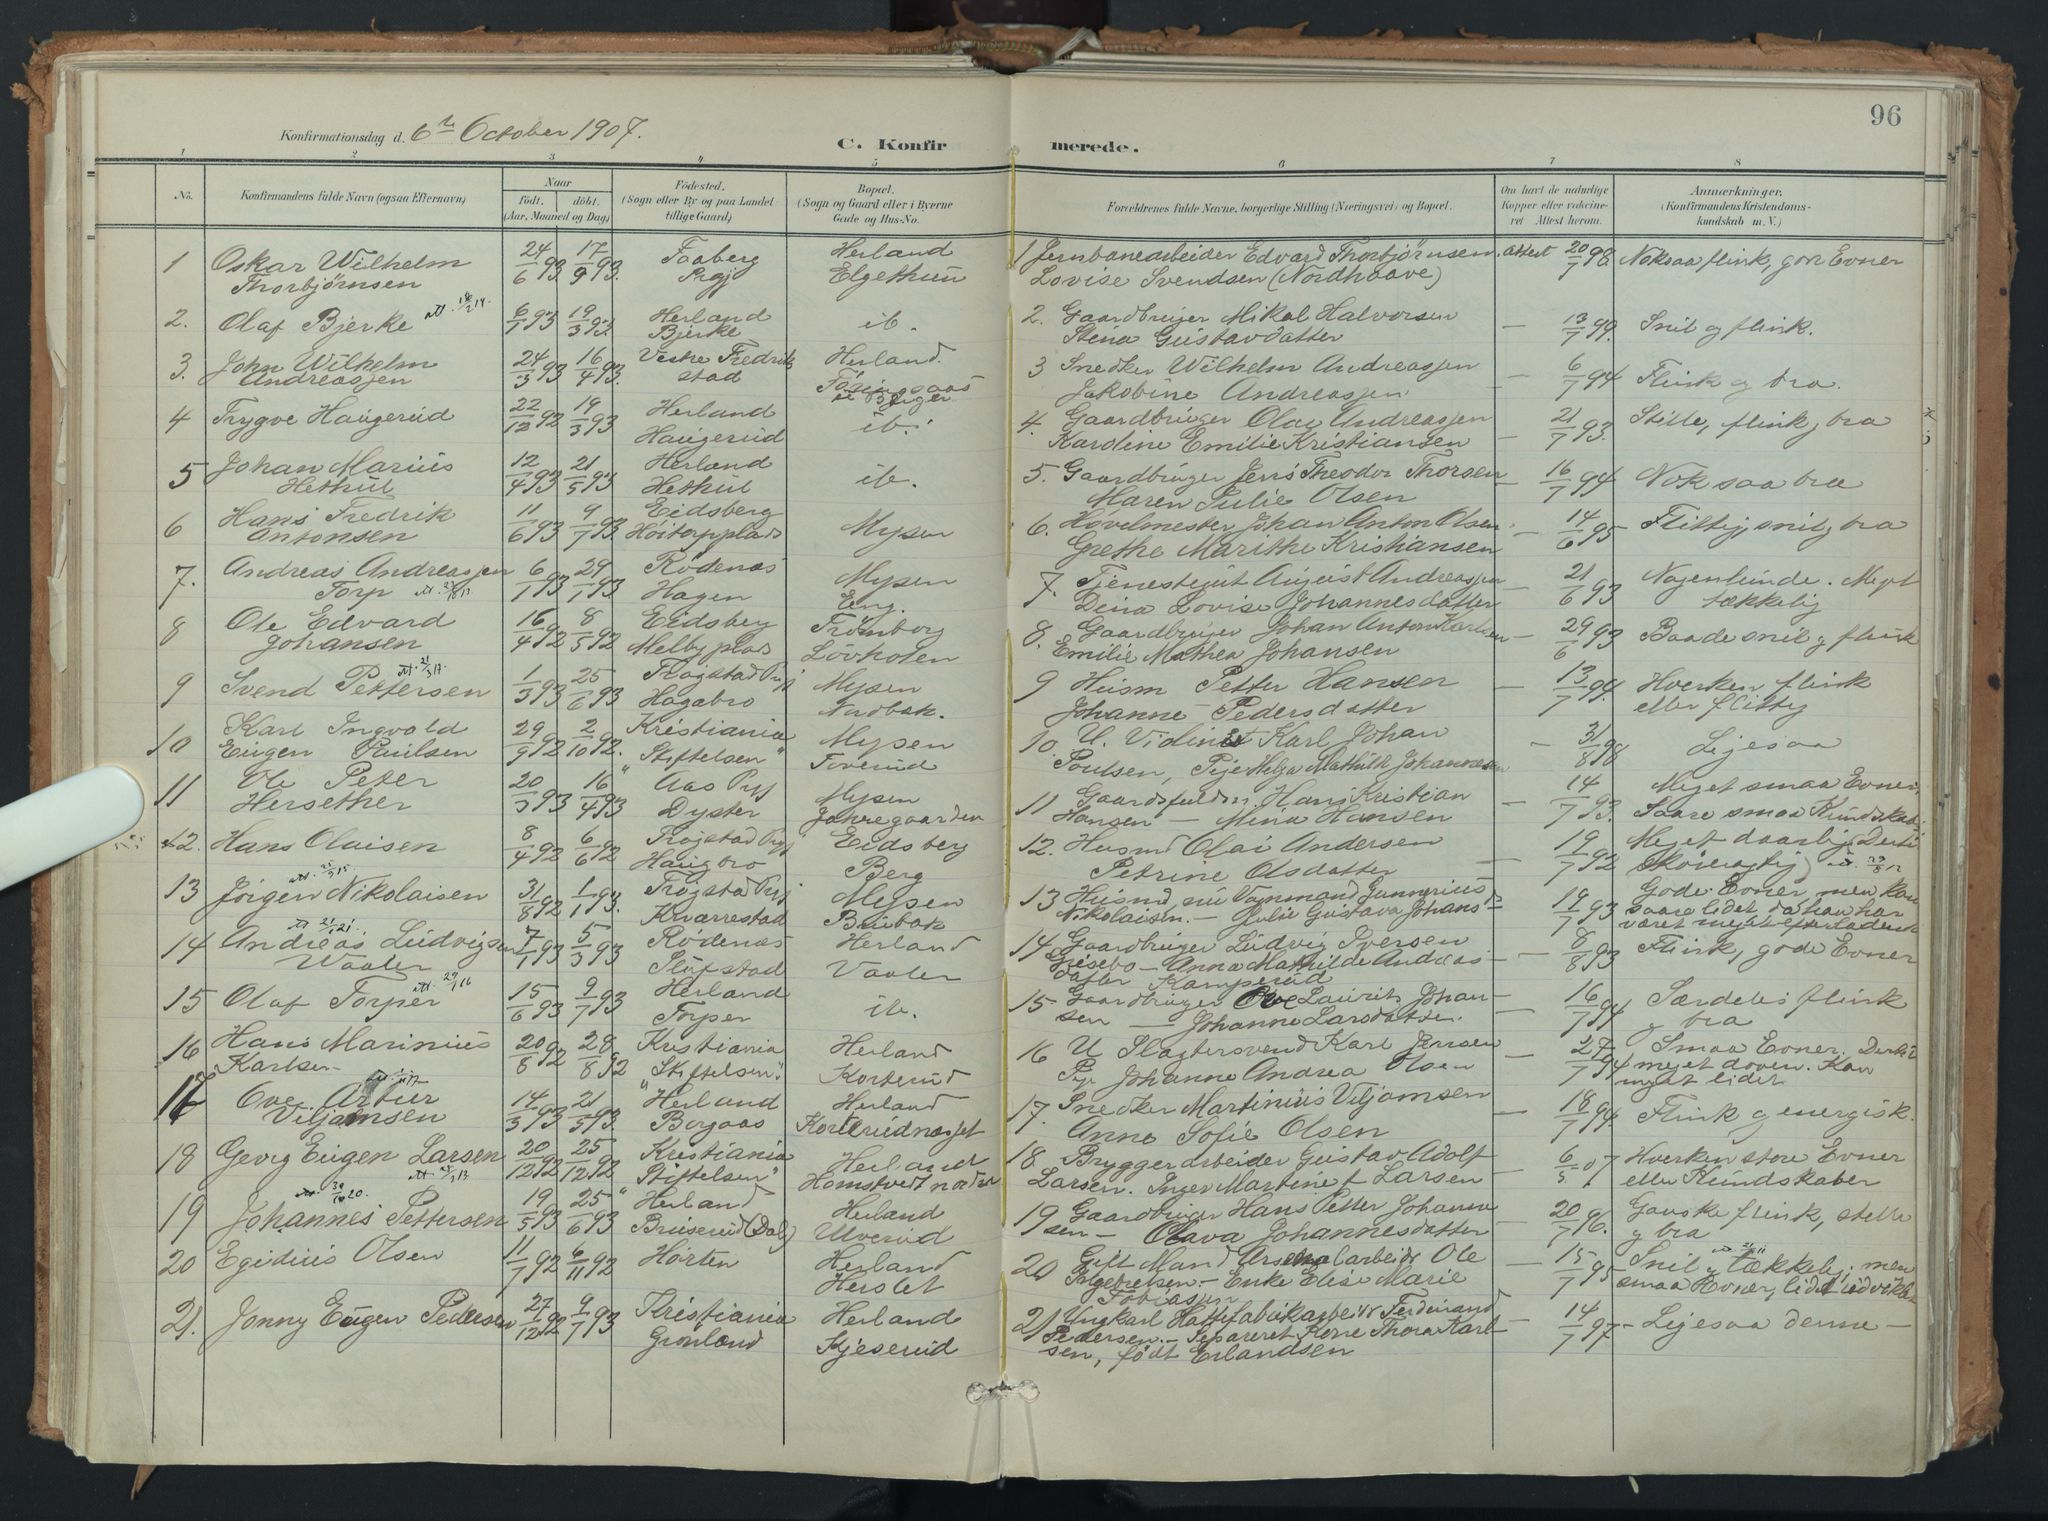 96
Konfirmationsdag d. 6te October 1907.
C. Konfirmerede.
1 2 3 4 5 6 7 8
No. Konfirmandens fulde Navn (ogsaa Efternavn) Naar født. døbt. (Aar, Maaned og Dag) Fødested. (Sogn eller By og paa Landet tillige Gaard) Bopæl. (Sogn og Gaard eller i Byerne Gade og Hus-No. Forældrenes fulde Navne, borgerlige Stilling (Næringsvei) og Bopæl. Om havt de naturlige Kopper eller vaccineret Attest herom. Anmærkninger. (Konfirmandens Kristendomskundskab m. V.)
1 Oskar Wilhelm 24/6 93 17/9 93 Faaberg Herland 1 Jernbanearbeider Edvard Thorbjörnsen attest 20/7 98 Noksaa flink, gode Evner
Thorbjörnsen Prgj Elgethun Lovise Svendsen (Nordhaave)
2. Olaf Bjerke 6/1 93 19/3 93 Herland ib. 2. Gaardbruger Mikal Halvorsen — 13/7 99. Snil og flink.
Bjerke Stina Gustavdatter
3. John Wilhelm 24/3 93 16/4 93. Vestre Fredrik Herland. 3 Snedker Wilhelm Andreassen — 6/7 94 Flink og bra.
Andreassen stad Jakobine Andreassen
4 Trygve Haugerud 22/12 92 19/3 93 Herland ib. 4. Gaardbruger Olai Andreassen — 21/7 93. Stille, flink, bra
Haugerud Karoline Emilie Kristiansen
5 Johan Marius 12/4 93 21/5 93 Herland ib. 5. Gaardbruger Jens Theodor Thorsen — 16/7 94 Nok saa bra
Hethul Hethul Maren Julie Olsen
6 Hans Fredrik 11/6 93 9/7 93 Eidsberg Mysen 6. Hovelmester Johan Anton Olsen — 14/6 95 Flittig, snil, bra
Antonsen Höitorpplads Grethe Marithe Kristiansen
7. Andreas Andreassen 6/1 93 29/1 93 Rödenæs Mysen 7. Tjenestegut August Andreassen — 21/6 93 Nogenlunde. Meget
Torp Hagen Eng. Dina Lovise Johannesdatter tækkelig
8 Ole Edvard 16/4 92 8/5 92 Eidsberg Trömborg 8. Gaardbruger Johan Anton Karlsen — 29/6 93 Baade snil og flink
Johansen Melbyplads Lövholen Emilie Mathea Johansen
9 Svend Pettersen 1/3 93 25/6 93 Trögstad Prgj Mysen 9 Husm Petter Hansen — 13/7 94. Hverken flink
Hagabro Nordbak. Johanne Pedersdatter eller flittig
10 Karl Ingvold 29/9 92 2/10 92. Kristiania Mysen 10. U. Karl Johan — 31/8 98 Ligesaa
Eugen Paulsen "Stiftelsen" Toverud Poulsen, Pige Helga Mathilde Johannesen
11 Ole Peter 20/3 93 16/4 93 Aas Prgj Mysen 11 Gaardsfuldm. Hans Kristian — 14/7 93. Meget smaa Evner,
Hersether Dyster Jahregaarden Hansen — Mina Hansen Saare smaa Kundskab
12. Hans Olaisen 8/4 92 6/6 92 Trögstad Prgj Eidsberg 12. Husmd Olai Andersen — 19/7 92 Meget daarlig
Haugbro Berg Petrine Olsdatter Skjöragtig)
13 Jörgen Nikolaisen 31/8 92 1/1 93. Trögstad Prgj Mysen 13 Husmd nu Vognmand Gunnerius — 19/7 93 Gode Evner men kan
Kvarrestad Buibak Nikolaisen. — Julie Gustava Johans saare lidet da han har
14 Andreas Ludvigsen 7/1 93 5/3 93 Rödenæs Herland 14 Gaardbruger Ludvig Iversen — 8/8 93 Flink, gode Evner
Vaaler Vaaler Grisebo — Anna Mathilde Andreas
datter Kamperud
15 Olaf Torper 15/6 93 9/7 93 Herland ib. 15 Gaardbruger Ole Laurits Johan — 16/7 94 Særdeles flink
Torper sen — Johanne Larsdatter. og bra
16 Hans Marinius 20/8 92 28/8 92 Kristiania Herland 16 U Slagtersvend Karl Jensen — 27/7 94 Smaa Evner.
Karlsen "Stiftelsen". Korterud Pige Johanne Andrea Olsen meget doven. Kan
meget lidet
17 Ove Artur 14/3 93 21/5 93 Herland Herland 17. Snedker Martinius Viljamsen — 18/7 94 Flink og energisk.
Viljamsen Borgaas Korterudnesset Anne Sofie Olsen
18 Georg Eugen Larsen 20/12 92 25/12 92 Kristiania Herland 18 Bryggerarbeider Gustav Adolf — 6/5 07 Hverken store Evner
"Stiftelsen" Homstvedt nedre Larsen. Inger Martine f Larsen eller Kundskaber
19 Johannes Pettersen 19/5 93 25/6 93 Herland Herland 19 Gaardbruger Hans Petter Johanne — 20/7 96. Ganske flink, stille
Buiserud (Dal) Ulverud sen — Olava Johannesdatter og bra
20 Egidius Olsen 11/7 92 6/11 92 Horten Herland 20 Gift Mand Arsenalarbeider Ole — 15/7 95 Snil og tækkelig; men
Herslet Ingebretsen. — Enke Elise Marie smaa Evner, lidet udviklet
Tobiasen
21. Jonny Eugen Pedersen 27/12 92 9/7 93 Kristiania Herland 21 Ungkarl Hattefabrikarbeider Ferdinand — 14/7 97 — Ligesaa denne —
Grönland Kjeserud Pedersen. — Separeret Kone Thora Karl
sen, född Erlandsen